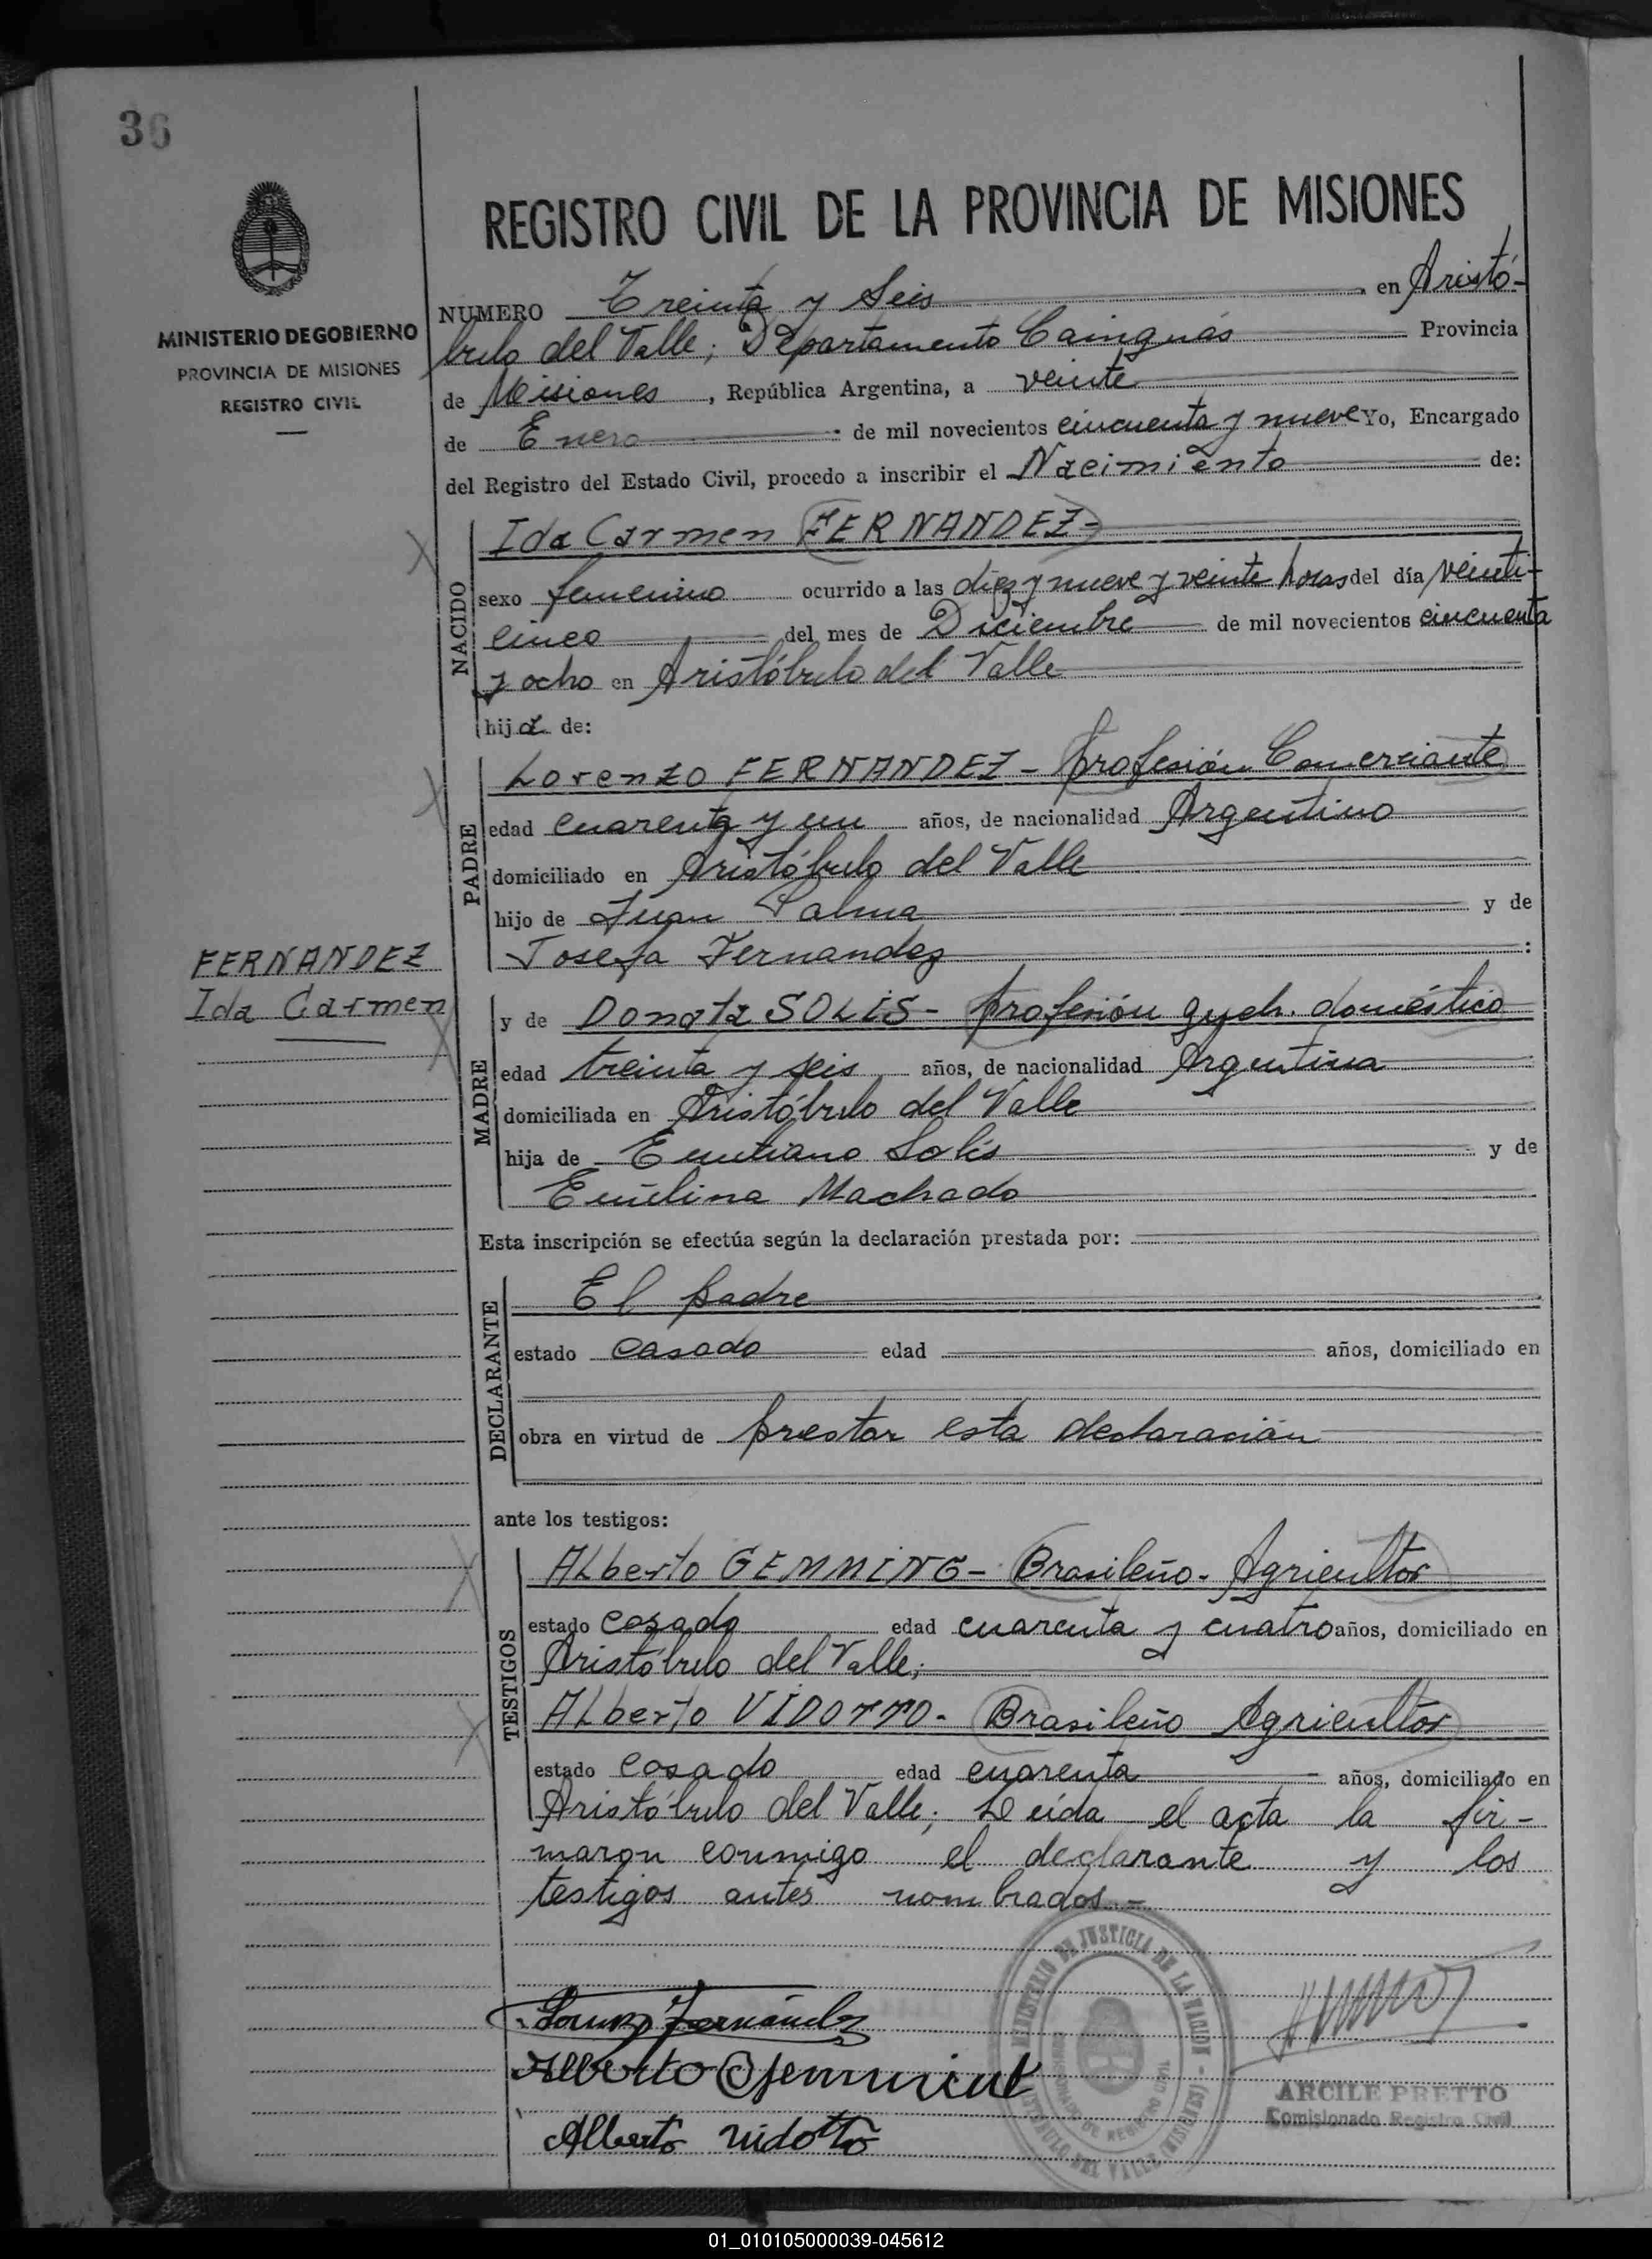 36
MINISTERIO DE GOBIERNO
PROVINCIA DE MISIONES
REGISTRO CIVIL
REGISTRO CIVIL DE LA PROVINCIA DE MISIONES
NUMERO Treinta y Seis en Aristó-
bulo del Valle; Departamento Cainguás Provincia
de Misiones, República Argentina, a veinte
de Enero de mil novecientos cincuenta y nueve Yo, Encargado
del Registro del Estado Civil, procedo a inscribir el Nacimiento de:
NACIDO
Ida Carmen FERNANDEZ-
sexo femenino ocurrido a las diez y nueve y veinte horas del día veinti-
cinco del mes de Diciembre de mil novecientos cincuenta
y ocho en Aristóbulo del Valle
hija de:
PADRE
Lorenzo FERNANDEZ - Profesión Comerciante
edad cuarenta y un años, de nacionalidad Argentino
domiciliado en Aristóbulo del Valle
hijo de Juan Palma y de
Josefa Fernandez :
FERNANDEZ
Ida Carmen
MADRE
y de Donata SOLIS - profesión queh. doméstico
edad treinta y seis años, de nacionalidad Argentina
domiciliada en Aristóbulo del Valle
hija de Emiliano Solis y de
Emilina Machado
Esta inscripción se efectúa según la declaración prestada por:
DECLARANTE
El padre
estado casado edad años, domiciliado en
obra en virtud de prestar esta declaración
ante los testigos:
TESTIGOS
Alberto GEMMING - Brasileño - Agricultor
estado casado edad cuarenta y cuatro años, domiciliado en
Aristóbulo del Valle;
Alberto VIDOTTO - Brasileño Agricultor
estado casado edad cuarenta años, domiciliado en
Aristóbulo del Valle; Leída el acta la fir-
maron conmigo el declarante y los
testigos antes nombrados.-
MINISTERIO DE JUSTICIA DE LA NACION - ARISTOBULO DEL VALLE (MISIONES)
Lorenzo Fernández
Alberto
Alberto Vidotto
ARCILE PRETTO
Comisionado Registro Civil
01_010105000039-045612